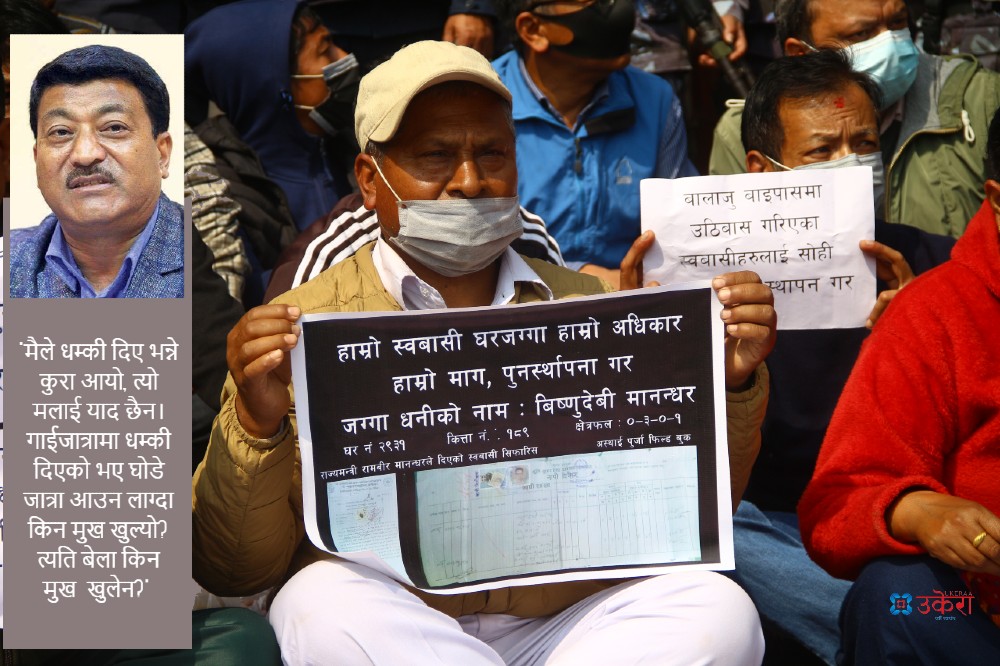 "मैले धम्की दिए भन्ने
कुरा आयो, त्यो
मलाई याद छैन।
गाईजात्रामा धम्की
दिएको भए घोडे
जात्रा आउन लाग्दा
किन मुख खुल्यो?
त्यति बेला किन
मुख खुलेन?"
बालाजु बाइपासमा
उठिबास गरिएका
स्वबासीहरुलाई सोही
स्थापन गर
हाम्रो स्वबासी घरजग्गा हाम्रो अधिकार
हाम्रो माग, पुनर्स्थापना गर
जग्गा धनीको नाम : बिष्णुदेवी मानन्धर
घर नं २९३१ कित्ता नं. : १८९ क्षेत्रफल : ०-३-०-१
राज्यमन्त्री रामबीर मानन्धरले दिएको स्वबासी सिफारिस अस्थाई पूर्जा फिल्ड बुक
UKERAA
उकेरा